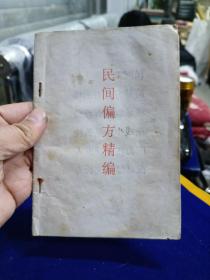 民间偏方精编